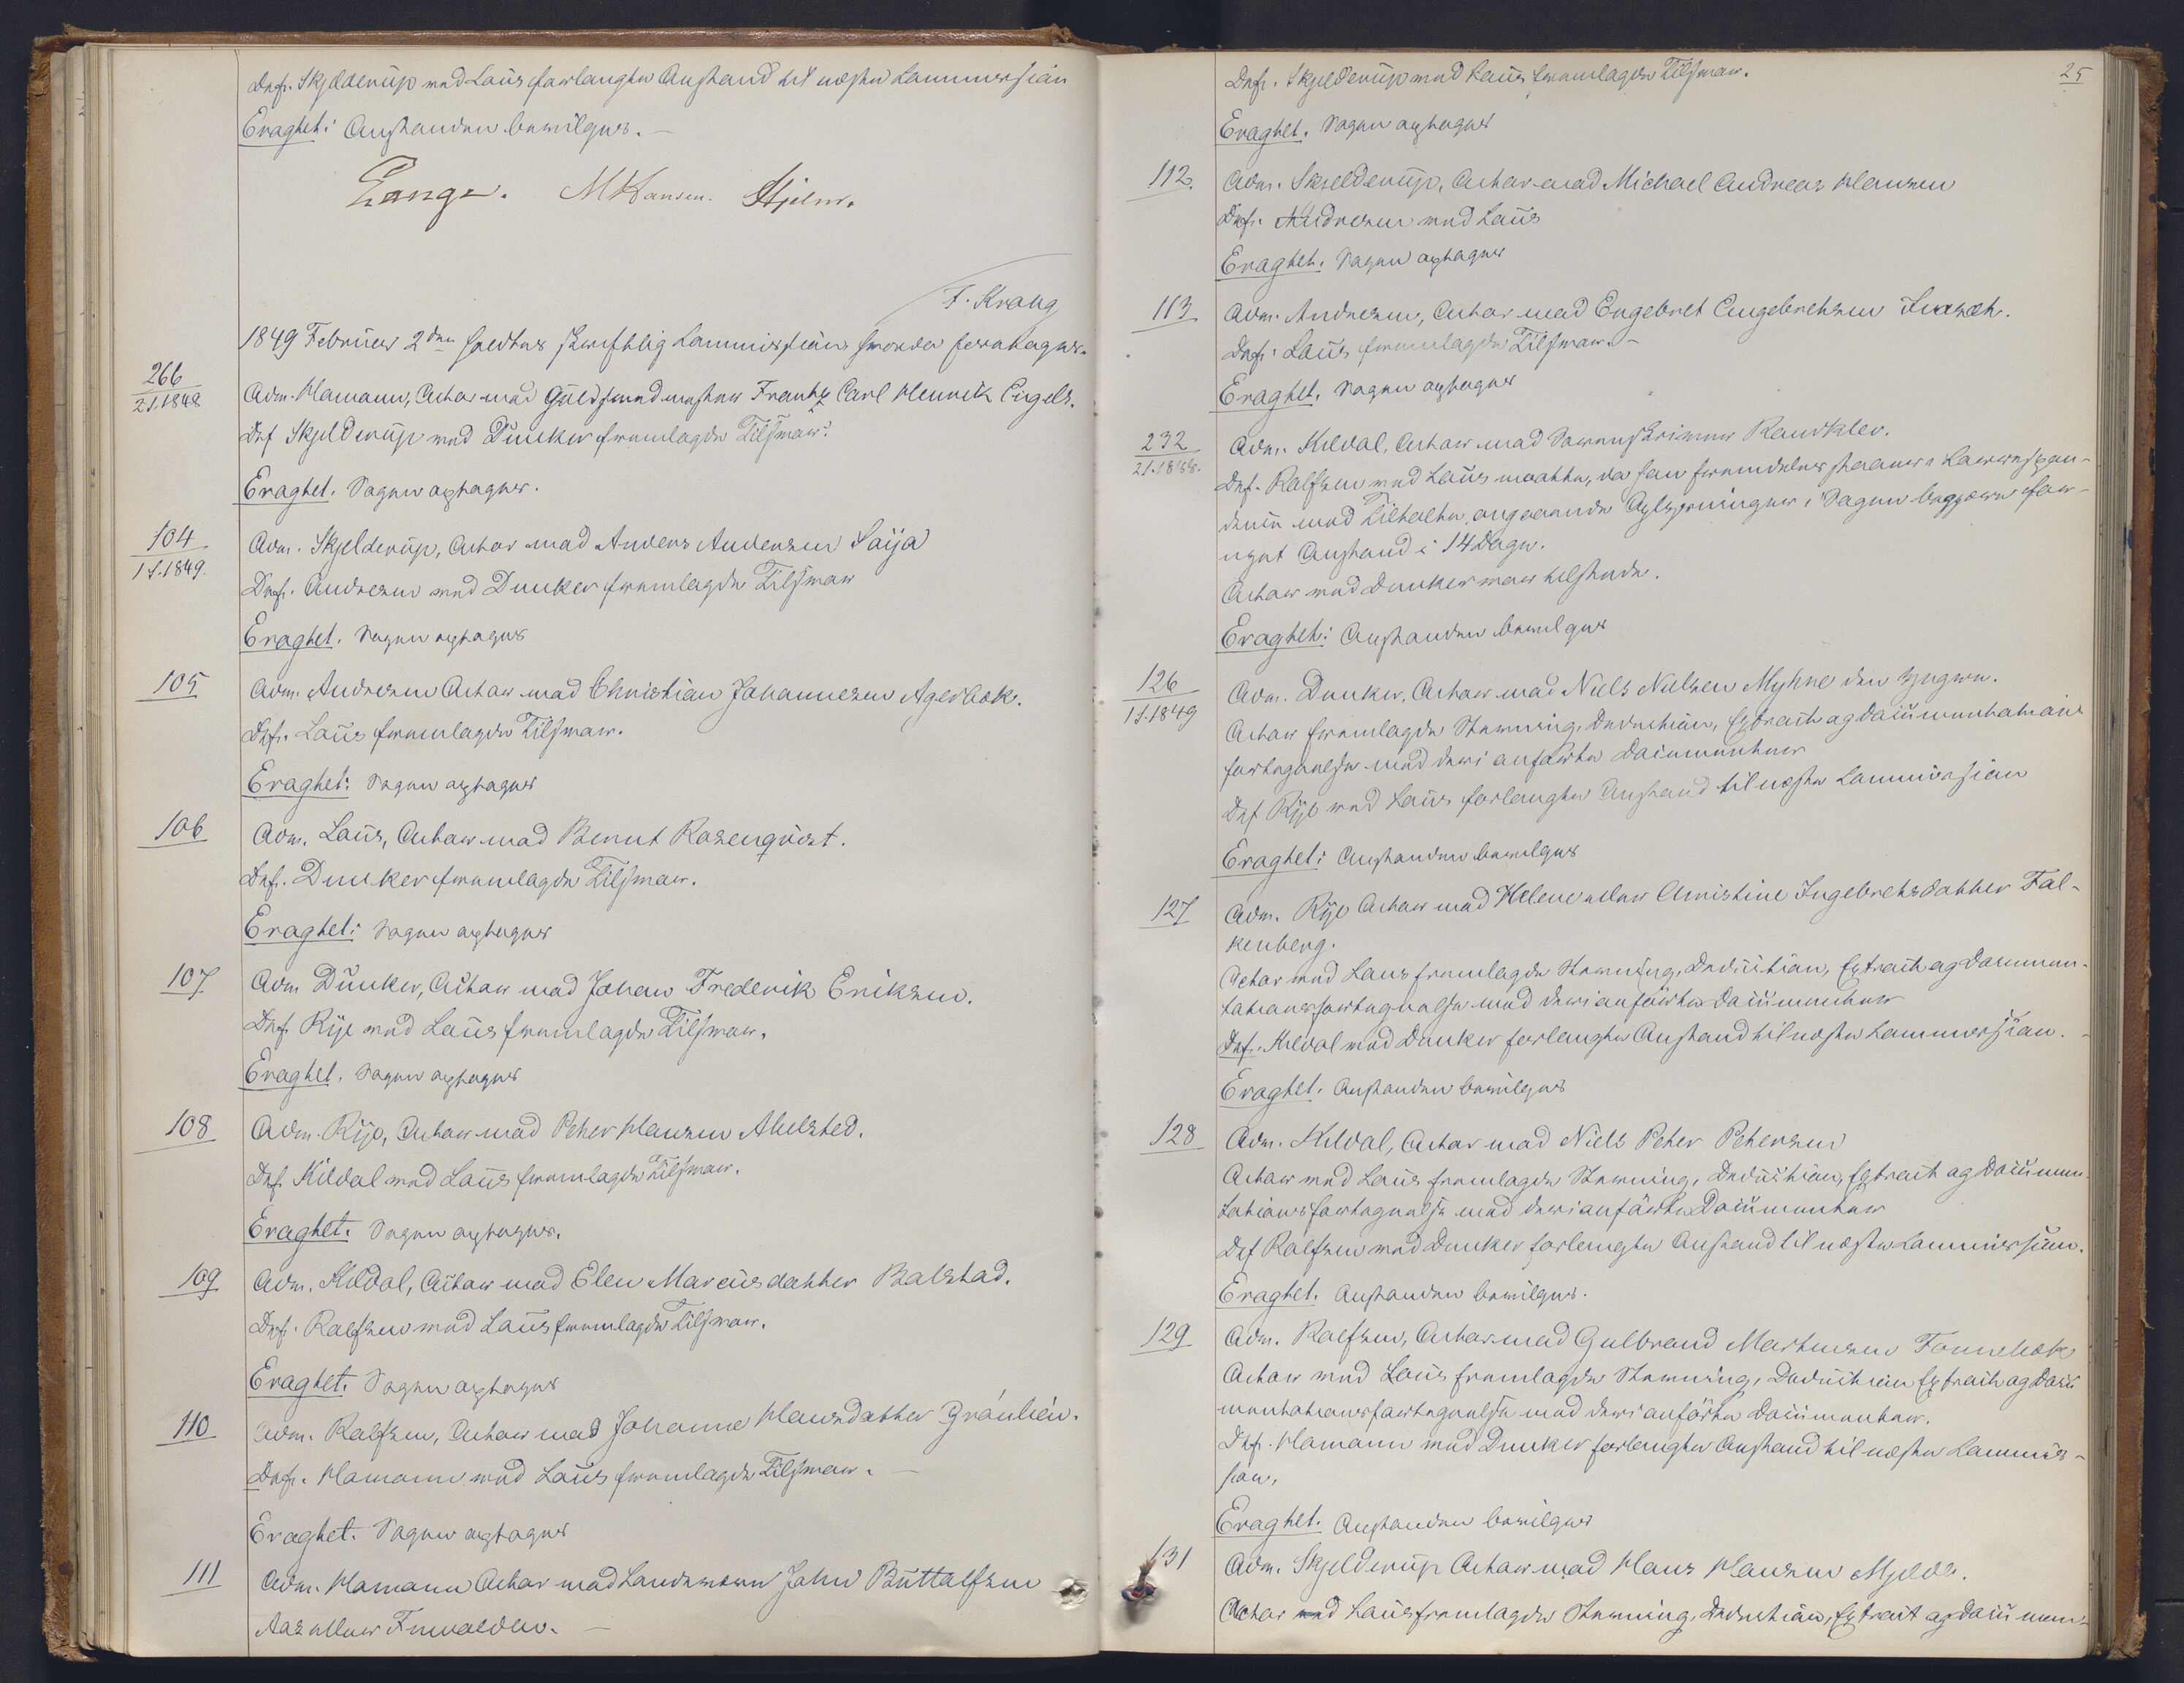 Def. Skjelderup med Laus forlangte Anstand til næste Commission
Eragtet: Anstanden bevilges. —
Lange. M Hansen. Hjelm.
F. Krang
1849 Februar 2den holdtes skriftlig Commission hvorda foretoges.
266
2 S. 1848
Adv. Hamann, Actor mod Guldsmedmester Frantz Carl Henrik Engels.
Def Skjelderup med Dunker fremlagde Tilsvar.
Eragtet. Sagen optages.
104
1 S. 1849.
Adv. Skjelderup, Actor mod Anders Andersen Saija
Def. Andresen med Dunker fremlagde Tilsvar
Eragtet. Sagen optages
105
Adv. Andresen Actor mod Christian Johannesen Agerbæk.
Def. Laus fremlagde Tilsvar.
Eragtet: Sagen optages
106
Adv. Laus, Actor mod Bernt Rosenqvist.
Def. Dunker fremlagde Tilsvar.
Eragtet: Sagen optages
107
Adv Dunker, Actor mod Johan Frederik Eriksen.
Def Rije med Laus fremlagde Tilsvar.
Eragtet. Sagen optages
108
Adv. Rije, Actor mod Peter Hansen Abelsted.
Def. Kildal med Laus fremlagde Tilsvar.
Eragtet. Sagen optages.
109
Adv. Kildal, Actor mod Elen Marcusdatter Balstad.
Def. Rolfsen med Laus fremlagde Tilsvar.
Eragtet. Sagen optages
110
Adv. Rolfsen, Actor mod Johanne Hansdatter Grønlien.
Def. Hamann med Laus fremlagde Tilsvar. —
Eragtet. Sagen optages
111
Adv. Hamann Actor mod Landværn John Buttolfsen
Aas eller —
25
Def. Skjelderup med Laus fremlagde Tilsvar.
Eragtet. Sagen optages
112.
Adv. Skjelderup, Actor mod Michael Andreas Hansen
Def. Andresen med Laus
Eragtet. Sagen optages
113
Adv. Andresen, Actor mod Engebret Engebretsen
Def: Laus fremlagde Tilsvar. —
Eragtet. Sagen optages
232
2 S. 1848.
Adv. Kildal, Actor mod Sorenskriver Randklev.
Def. Rolfsen med Laus maatte, da han fremdeles staaer i Correspon-
dence med Tiltalte angaaende Oplysninger i Sagen begjære for-
nyet Anstand i 14 Dage.
Actor med Dunker var tilstede.
Eragtet: Anstanden bevilges
126
1 S. 1849
Adv. Dunker, Actor mod Niels Nielsen Myhre den yngre.
Actor fremlagde Stevning, Deduction, Extract og Documentations
fortegnelse med deri anførte Documenter
Def Rije med Laus forlangte Anstand til næste Commission
Eragtet: Anstanden bevilges
127
Adv. Rije Actor mod Helene eller Christine Ingebretsdatter Fal-
kenberg.
Actor med Laus fremlagde Stevning, Deduction, Extract og Documen-
tationsfortegnelse med deri anførte Documenter
Def. Kildal med Dunker forlangte Anstand til næste Commission. —
Eragtet. Anstanden bevilges
128
Adv. Kildal, Actor mod Niels Peter Petersen
Actor med Laus fremlagde Stevning, Deduction, Extract og Documen-
tationsfortegnelse med deri anførte Documenter
Def Rolfsen med Dunker forlangte Anstand til næste Commission.
Eragtet. Anstanden bevilges.
129
Adv. Rolfsen, Actor mod Gulbrand Martinsen
Actor med Laus fremlagde Stevning, Deduction Extract og Docu
mentationsfortegnelse med deri anførte Documenter.
Def. Hamann med Dunker forlangte Anstand til næste Commis-
sion.
Eragtet. Anstanden bevilges
131
Adv. Skjelderup Actor mod Hans Hansen Mjelde.
Actor med Laus fremlagde Stevning, Deduction, Extract og Documen-